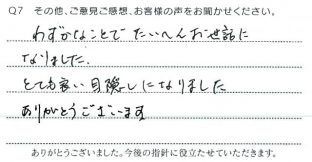 Q7 その他、ご意見ご感想、お客様の声をお聞かせください。
わずかなことでたいへんお世話に
なりました。
とても良い目隠しになりました
ありがとうございます
ありがとうございました。今後の指針に役立たせていただきます。